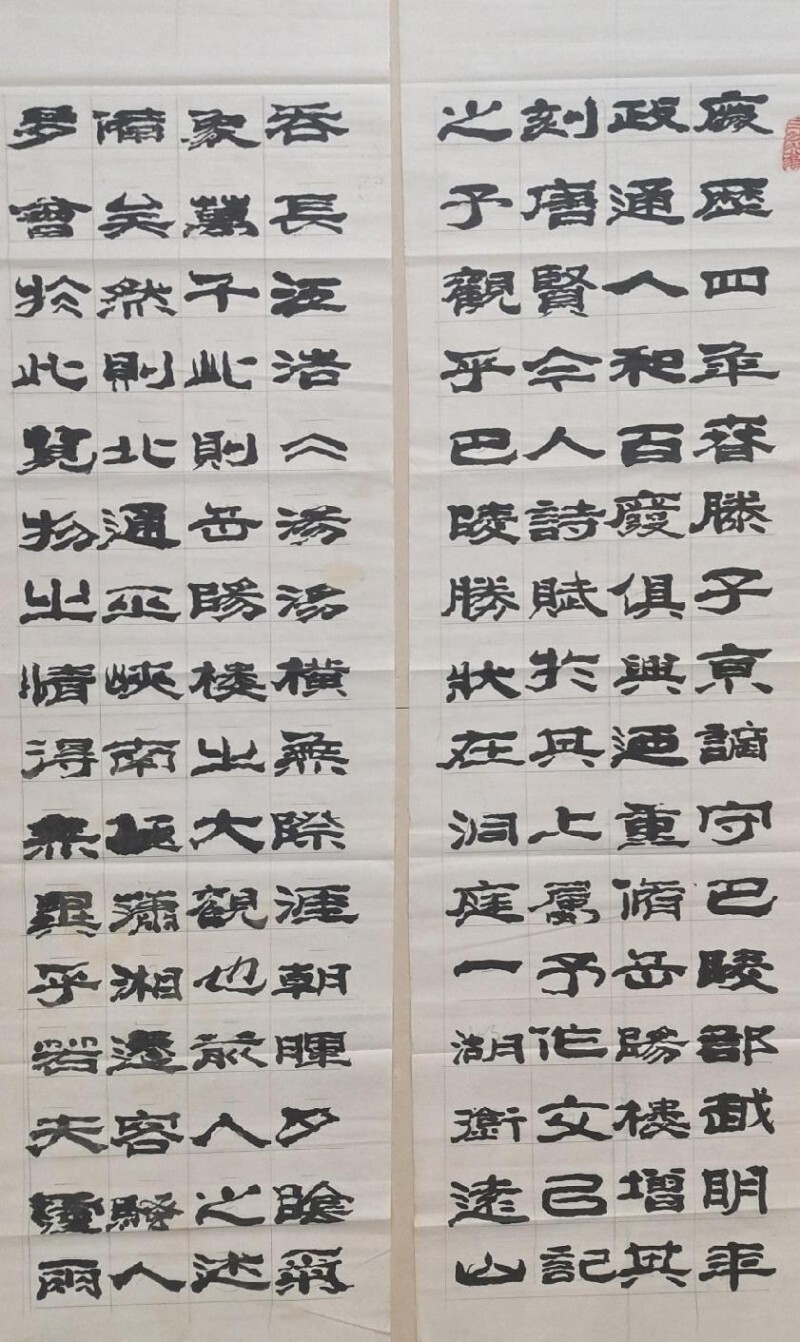 慶歷四年春滕子京謫守巴陵郡越明年
政通人和百廢俱興迺重脩岳陽樓增其
刻唐賢今人詩賦於其上屬予作文已記
之予觀乎巴陵勝狀在洞庭一湖銜遠山
吞長江浩〻湯湯橫無際涯朝暉夕陰氣
象萬千此則岳陽樓之大觀也前人之述
備矣然則北通巫峽南極瀟湘遷客騷人
多會於此覽物之情得無異乎若夫霪雨